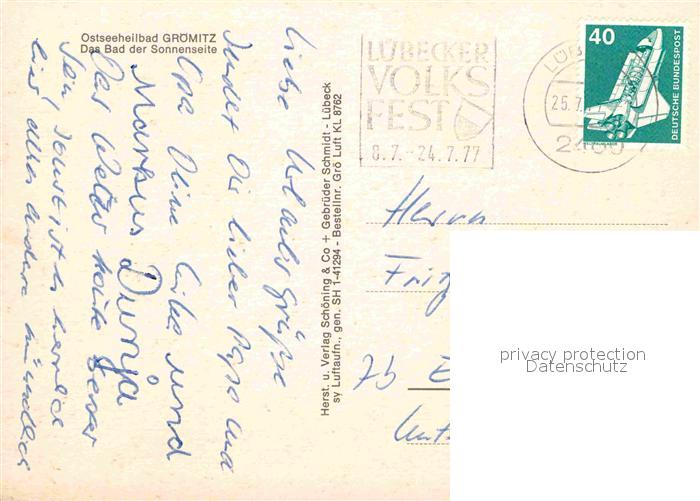 Ostseeheilbad GRÖMITZ
Das Bad der Sonnenseite
Liebe Urlaubsgrüße
sendet Dir lieber Papa und
Opa Deine
Markus und
Dunja
Das Wetter könnte besser
sein, sonst ist es herrlich
hier, alles andere mündlich
Herst. u. Verlag Schöning & Co + Gebrüder Schmidt - Lübeck
sy Luftaufn., gen. SH 1-41294 - Bestellnr. Grö Luft KL 8762
LÜBECKER
VOLKS
FEST
8.7.-24.7.77
25.7.77
2400
40
DEUTSCHE BUNDESPOST
Herrn
75
privacy protection
Datenschutz